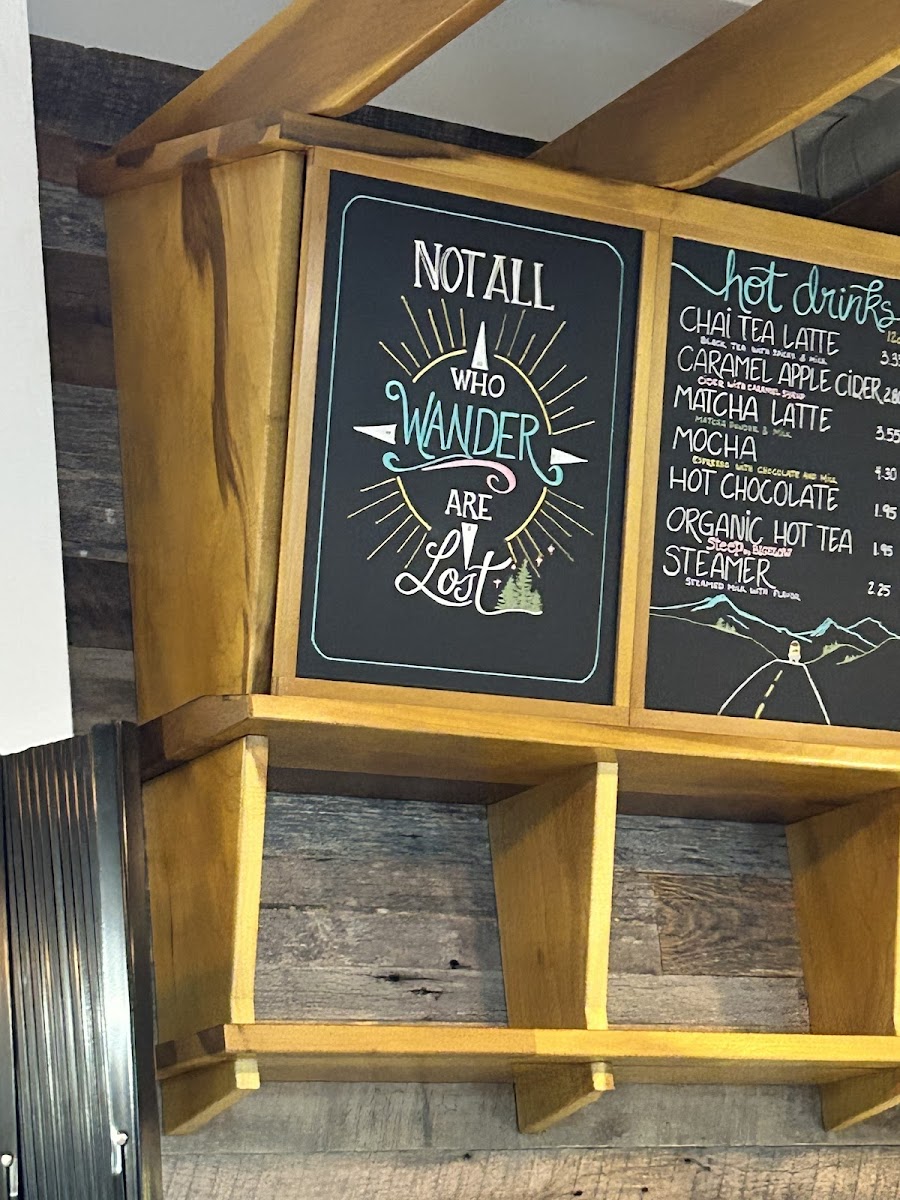 NOT ALL
WHO
WANDER
ARE
Lost
hot drinks
CHAI TEA LATTE
BLACK TEA WITH SPICES & MILK
CARAMEL APPLE CIDER
CIDER WITH CARAMEL SYRUP
MATCHA LATTE 3.55
MATCHA POWDER & MILK
MOCHA 4.30
ESPRESSO WITH CHOCOLATE AND MILK
HOT CHOCOLATE 1.95
ORGANIC HOT TEA 1.95
Steep by BIGELOW
STEAMER 2.25
STEAMED MILK WITH FLAVOR